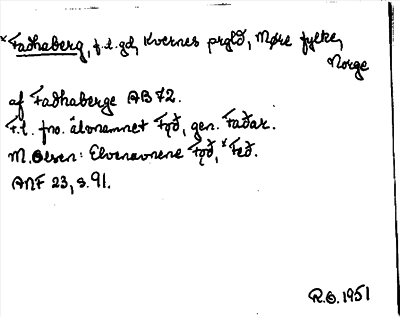 *Faðhaberg, f.l. gd, Kvernes prgld, Møre fylke,
Norge
af Faðhaberge AB 72.
F.l. fno. älvnamnet Fǫð, gen. Faðar.
M. Olsen: Elvenavnene Fǫð, *Feð.
ANF 23, s. 91.
R.O. 1951